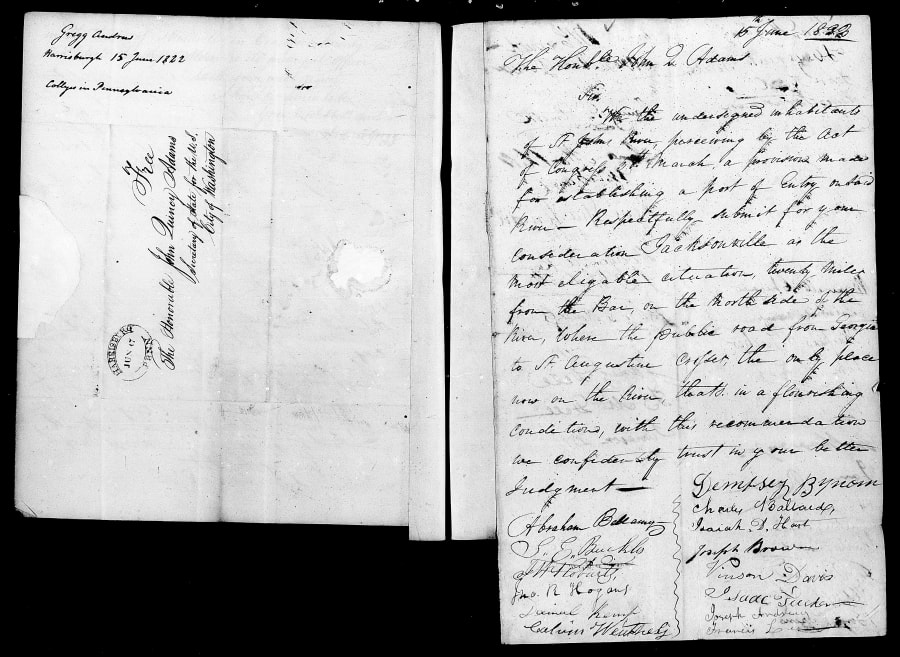 Gregg Andrew
Harrisburgh 15 June 1822
Colleges in Pennsylvania
Free
The Honorable John Quincy Adams
Secretary of State for the U.S.
City of Washington
HARRISBURG
JUN 17
PENN
15th June 1822
The Honble John Q Adams
Sir,
We the undersigned inhabitants
of St Johns River, perceiving by the Act
of Congress March, a provision made
for establishing a port of Entry on said
River — Respectfully submit for your
consideration Jacksonville as the
most eligable cituation, twenty Miles
from the Bar, on the North side of the
River, Where the public road from Georgia
to St Augustine crosses, the only place
now on the River, thats in a flourishing
condition, with this recommendation
we confidently trust in your better
Judgment —
Abraham Bellamy
S. E. Buckls
Jno. R Hogans
Daniel Kemp
Calvin
Dempsey Bynom
Charles Ballard,
Isaiah D. Hart
Joseph Brown
Vinson Davis
Isaac Tucker
Joseph
Francis